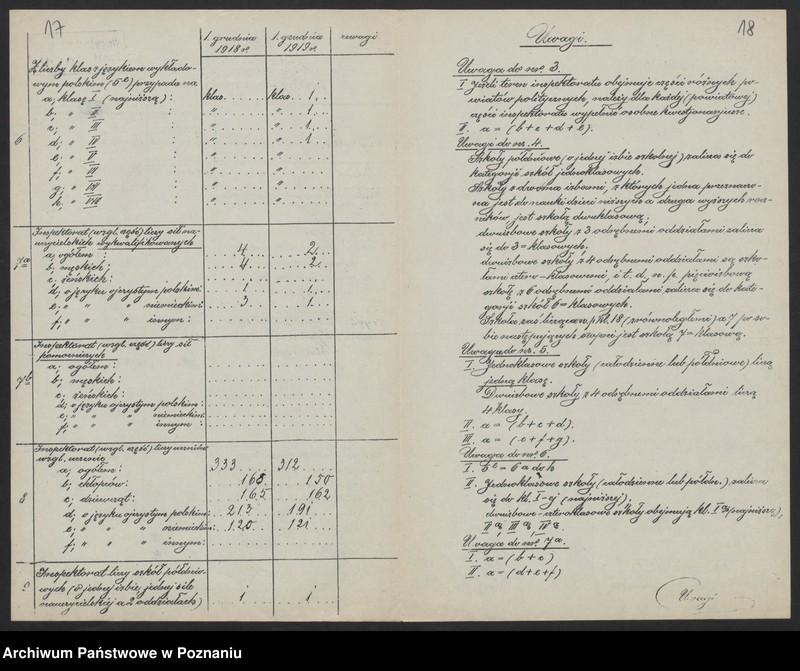 17
1. grudnia 1918 r.
1. grudnia 1919 r.
uwagi
Z liczby klas z językiem wykłado-
wym polskim (5e) przypada na
6
a, klasę I (najniższą): klas klas 1
b, " II " " 1
c, " III " " 1
d, " IV " " 1
e, " V " "
f, " VI " "
g, " VII " "
h, " VIII " "
7a
Inspektorat (wzgl. część) liczy sił na-
uczycielskich wykwalifikowanych
a, ogółem: 4 2
b, męskich: 4 2
c, żeńskich:
d, o języku ojczystym polskim: 1 1
e, " " " niemieckim: 3 1
f, " " " innym:
7b
Inspektorat (wzgl. część) liczy sił
pomocniczych
a, ogółem:
b, męskich:
c, żeńskich:
d, o języku ojczystym polskim:
e, " " " niemieckim:
f, " " " innym:
8
Inspektorat (wzgl. część) liczy uczniów
wzgl. uczenic
a, ogółem: 333 312
b, chłopców: 168 150
c, dziewcząt: 165 162
d, o języku ojczystym polskim: 213 191
e, " " " niemieckim: 120 121
f, " " " innym:
9
Inspektorat liczy szkół półdnio-
wych (o jednej izbie, jednej sile
nauczycielskiej a 2 oddziałach) 1 1
18
Uwagi.
Uwaga do nr. 3.
I. Jeżeli teren inspektoratu obejmuje części różnych po-
wiatów politycznych, należy dla każdej (powiatowej)
części inspektoratu wypełnić osobne kwestjonarjusze.
II. a = (b + c + d + e).
Uwaga do nr. 4.
Szkoły półdniowe (o jednej izbie szkolnej) zalicza się do
kategorji szkół jednoklasowych.
Szkoły z dwoma izbami, z których jedna przeznaczo-
na jest do nauki dzieci niższych a druga wyższych rocz-
ników jest szkołą dwuklasową;
dwuizbowe szkoły z 3 odrębnemi oddziałami zalicza
się do 3 = klasowych.
dwuizbowe szkoły z 4 odrębnemi oddziałami są szko-
łami cztero-klasowemi, i t. d., n. p. pięcioizbową
szkołę z 6 odrębnemi oddziałami zalicza się do kate-
gorji szkół 6 = klasowych.
Szkoła zaś licząca n. p. kl. 18 (z równoległemi) a 7 po so-
bie następujących stopni jest szkołą 7 = klasową.
Uwaga do nr. 5.
I. Jednoklasowe szkoły (całodzienne lub półdniowe) liczą
jedną klasę.
Dwuizbowe szkoły z 4 odrębnemi oddziałami liczą
4 klasy.
II. a = (b + c + d).
III. a = (e + f + g).
Uwaga do nr. 6.
I. 5e = 6 a do h
II. Jednoklasowe szkoły (całodzienne lub półdn.), zalicza
się do kl. I-ej (najniższej);
dwuizbowe - czteroklasowe szkoły obejmują kl. I ą (najniższą),
II ą, III ą, IV ą.
Uwaga do nr. 7a.
I. a = (b + c)
II. a = (d + e + f)
Uwagi
Archiwum Państwowe w Poznaniu